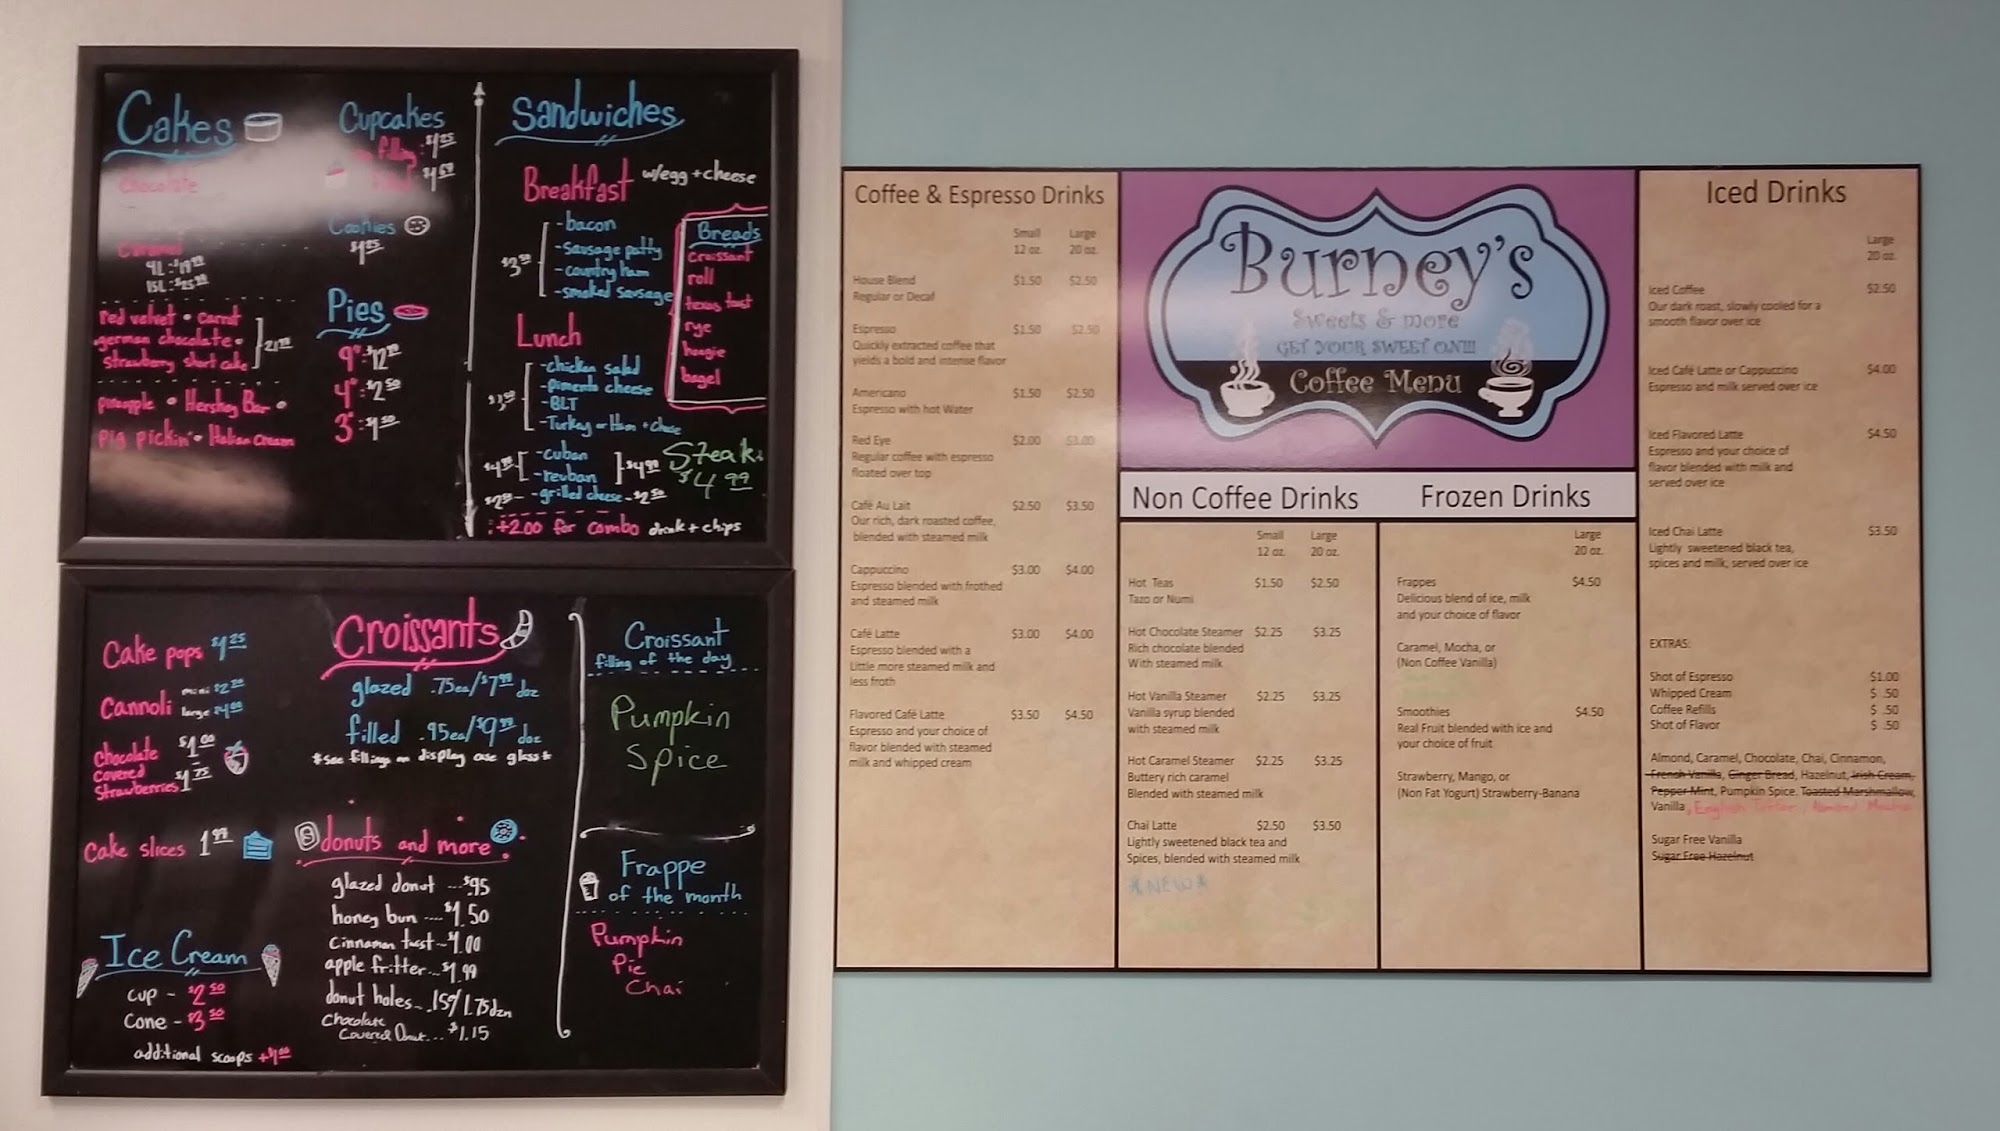 Cakes
Chocolate
Caramel
9L : $19.99
red velvet • carrot
german chocolate •
Strawberry short cake
pineapple • Hershey Bar •
pig pickin' • Italian Cream
Cupcakes
filling : $1.25
Cookies
$1.25
Pies
9" : $12.99
4" : $2.50
3" : $1.50
Sandwiches
Breakfast w/egg + cheese
$3.50
- bacon
- Sausage patty
- country ham
- smoked sausage
Breads
croissant
roll
texas toast
rye
hoagie
bagel
Lunch
- chicken salad
- pimento cheese
- BLT
- Turkey or Ham + Chese
$4.99 - cuban $4.99
- reuban
- grilled cheese - $2.50
Steak
$4.99
+2.00 for combo drink + chips
Cake pops $1.25
Cannoli mini $2.00
large $4.00
Chocolate $1.00
Covered
Strawberries $1.75
Cake slices 1.99
Ice Cream
cup - $2.50
cone - $3.50
additional scoops + $1.00
Croissants
glazed .75ea/$7.99 doz
filled .95ea/$9.99 doz
*see fillings on display case glass*
donuts and more
glazed donut ... $.95
honey bun .... $1.50
cinnamon twist - $1.00
apple fritter... $1.99
donut holes... .15¢/1.75dzn
Chocolate
Covered Donut... $1.15
Croissant
filling of the day
Pumpkin
Spice
Frappe
of the month
Pumpkin
Pie
Chai
Coffee & Espresso Drinks
Small Large
12 oz. 20 oz.
House Blend $1.50 $2.50
Regular or Decaf
Espresso $1.50 $2.50
Quickly extracted coffee that
yields a bold and intense flavor
Americano $1.50 $2.50
Espresso with hot Water
Red Eye $2.00 $3.00
Regular coffee with espresso
floated over top
Café Au Lait $2.50 $3.50
Our rich, dark roasted coffee,
blended with steamed milk
Cappuccino $3.00 $4.00
Espresso blended with frothed
and steamed milk
Café Latte $3.00 $4.00
Espresso blended with a
Little more steamed milk and
less froth
Flavored Café Latte $3.50 $4.50
Espresso and your choice of
flavor blended with steamed
milk and whipped cream
Burney's
Sweets & more
GET YOUR SWEET ON!!!
Coffee Menu
Non Coffee Drinks
Small Large
12 oz. 20 oz.
Hot Teas $1.50 $2.50
Tazo or Numi
Hot Chocolate Steamer $2.25 $3.25
Rich chocolate blended
With steamed milk
Hot Vanilla Steamer $2.25 $3.25
Vanilla syrup blended
with steamed milk
Hot Caramel Steamer $2.25 $3.25
Buttery rich caramel
Blended with steamed milk
Chai Latte $2.50 $3.50
Lightly sweetened black tea and
Spices, blended with steamed milk
*NEW*
Frozen Drinks
Large
20 oz.
Frappes $4.50
Delicious blend of ice, milk
and your choice of flavor
Caramel, Mocha, or
(Non Coffee Vanilla)
Smoothies $4.50
Real Fruit blended with ice and
your choice of fruit
Strawberry, Mango, or
(Non Fat Yogurt) Strawberry-Banana
Iced Drinks
Large
20 oz.
Iced Coffee $2.50
Our dark roast, slowly cooled for a
smooth flavor over ice
Iced Café Latte or Cappuccino $4.00
Espresso and milk served over ice
Iced Flavored Latte $4.50
Espresso and your choice of
flavor blended with milk and
served over ice
Iced Chai Latte $3.50
Lightly sweetened black tea,
spices and milk, served over ice
EXTRAS:
Shot of Espresso $1.00
Whipped Cream $ .50
Coffee Refills $ .50
Shot of Flavor $ .50
Almond, Caramel, Chocolate, Chai, Cinnamon,
French Vanilla, Ginger Bread, Hazelnut, Irish Cream,
Pepper Mint, Pumpkin Spice, Toasted Marshmallow,
Vanilla, English Toffee, Almond Mocha
Sugar Free Vanilla
Sugar Free Hazelnut